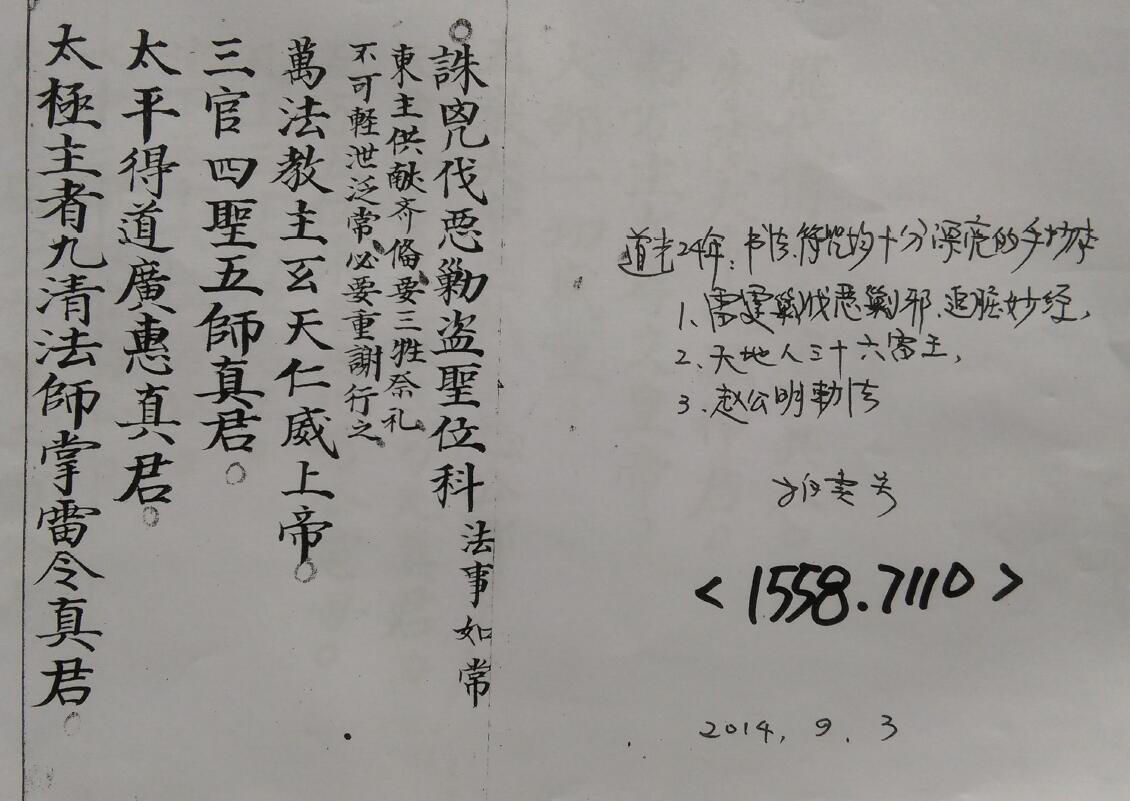 誅兇伐惡勦盗聖位科 法事如常
東主供献齐俻要三牲祭礼
不可軽泄泛常必要重謝行之
萬法教主玄天仁威上帝
三官四聖五師真君
太平得道廣惠真君
太極主者九清法師掌雷令真君
道光24年：书法、符咒均十分漂亮的手抄本
1、雷霆伐恶剿邪、追脏妙经，
2、天地人三十六雷主，
3、赵公明勅法
<1558.7110>
2014，9．3